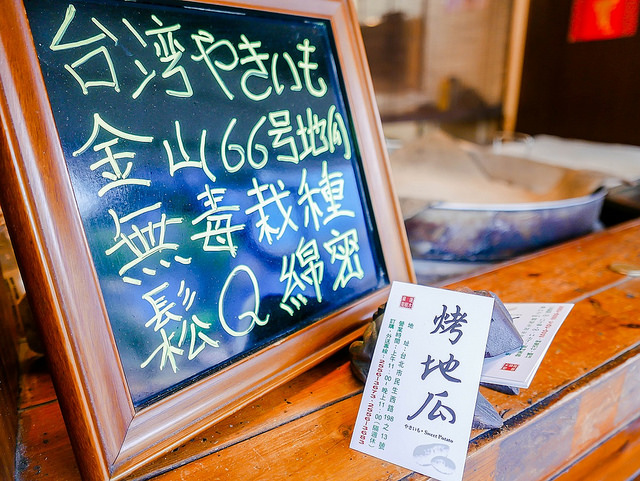 台湾やきいも
金山66号地瓜
無毒栽種
鬆Q綿密
烤地瓜
やきいも・Sweet Potato
地 址:台北市民生西路198之13號
營業時間:上午11:00~晚上11:00